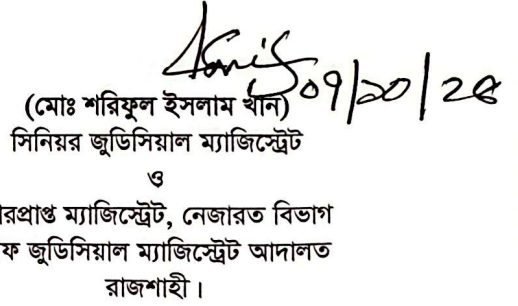 ০৭/১০/২৪
(মোঃ শরিফুল ইসলাম খান)
সিনিয়র জুডিসিয়াল ম্যাজিস্ট্রেট
ও
রপ্রাপ্ত ম্যাজিস্ট্রেট, নেজারত বিভাগ
ফ জুডিসিয়াল ম্যাজিস্ট্রেট আদালত
রাজশাহী।